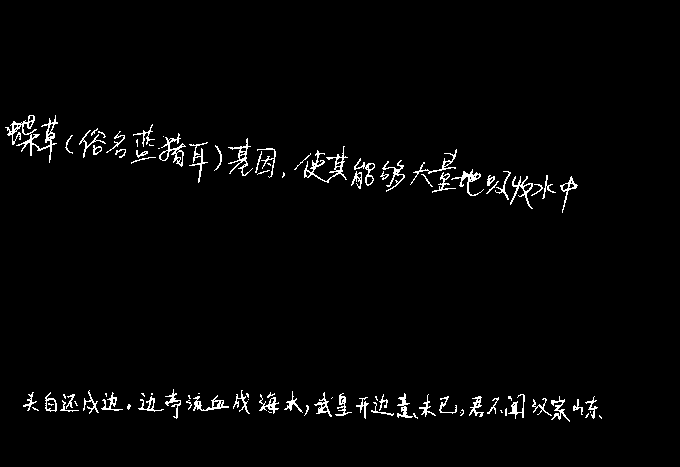 蝶草(俗名蓝猪耳)基因,使其能够大量地吸收水中
头白还戍边。边亭流血成海水,武皇开边意未已,君不闻汉家山东